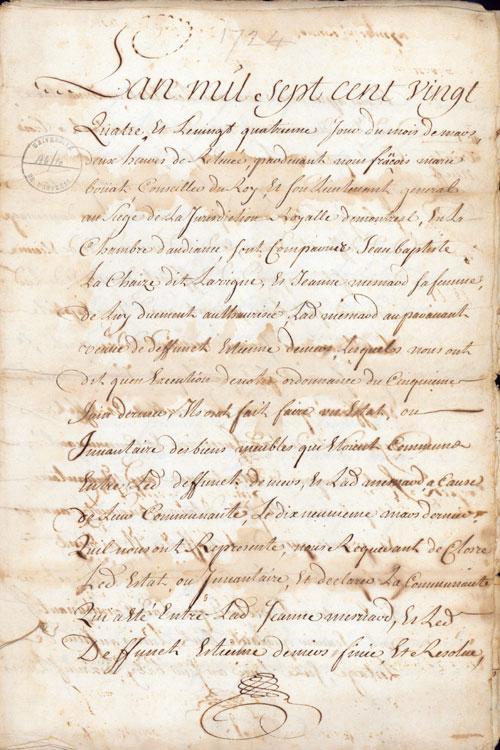 1724
Lan mil sept cent vingt
Quatre, Et Levingt quatrieme Jour du mois de mars
deux heures de Relevee pardevant nous françois marie
boüat Conseiller du Roy, Et son Lieutenant general
au Siege de La Jurisdiction Royalle demontreal, En La
Chambre daudiance, sont Comparues Jean baptiste
La Chaize dit Lavigne, Et Jeanne menard sa femme,
de Luy duement authorisée, Lad menard auparavant
veuve de deffunct Estienne demers, Lesquels nous ont
dit quen Execution denotre ordonnance du Cinquieme
dernier, Ils ont fait faire un Estat, ou
Inuantaire des biens meubles qui Etoient Communs
Entre Led deffunct demers, Et Lad menard a Cause
de Leur Communauté, Le dix neuuieme mars dernier
Quil nous ont Represente, nous Requerant de Clore
Led Estat, ou Inuantaire, Et declarer La Communauté
Qui a Eté Entre Lad Jeanne menard, Et Led
Deffunct Estienne demers finie, Et Resolue,
UNIVERSITÉ
DE MONTRÉAL